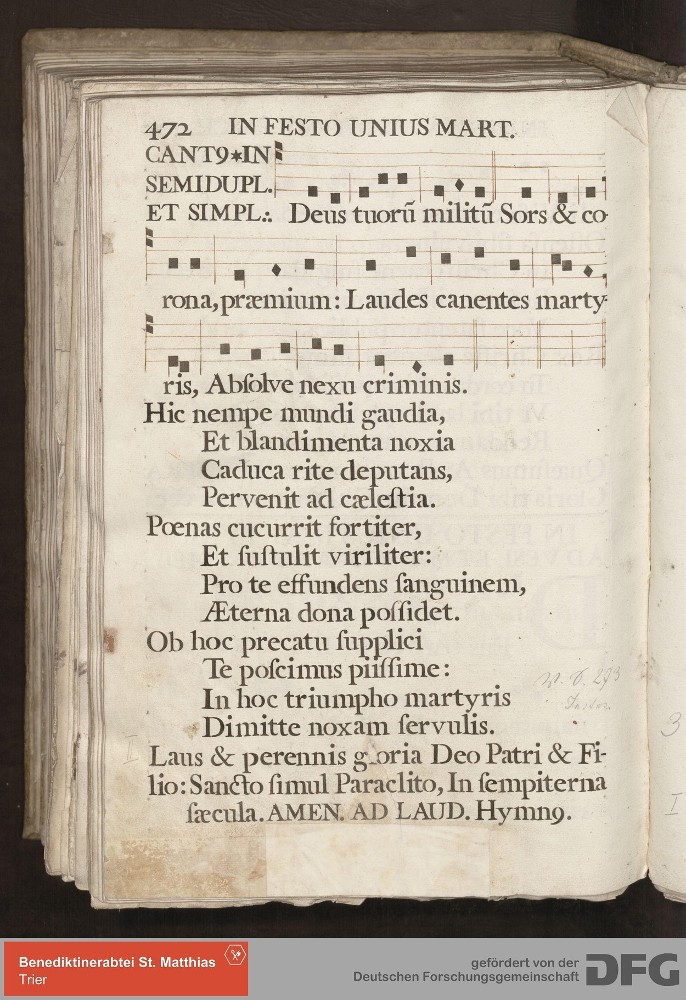 472 IN FESTO UNIUS MART.
CANT9*IN
SEMIDUPL.
ET SIMPL.: Deus tuorũ militũ Sors & co-
rona, præmium: Laudes canentes marty-
ris, Abſolve nexu criminis.
Hic nempe mundi gaudia,
Et blandimenta noxia
Caduca rite deputans,
Pervenit ad cæleſtia.
Pœnas cucurrit fortiter,
Et ſuſtulit viriliter:
Pro te effundens ſanguinem,
Æterna dona poſſidet.
Ob hoc precatu ſupplici
Te poſcimus piiſſime:
In hoc triumpho martyris
Dimitte noxam ſervulis.
Laus & perennis gloria Deo Patri & Fi-
lio: Sancto ſimul Paraclito, In ſempiterna
ſæcula. AMEN. AD LAUD. Hymn9.
Benediktinerabtei St. Matthias
Trier
gefördert von der
Deutschen Forschungsgemeinschaft
DFG